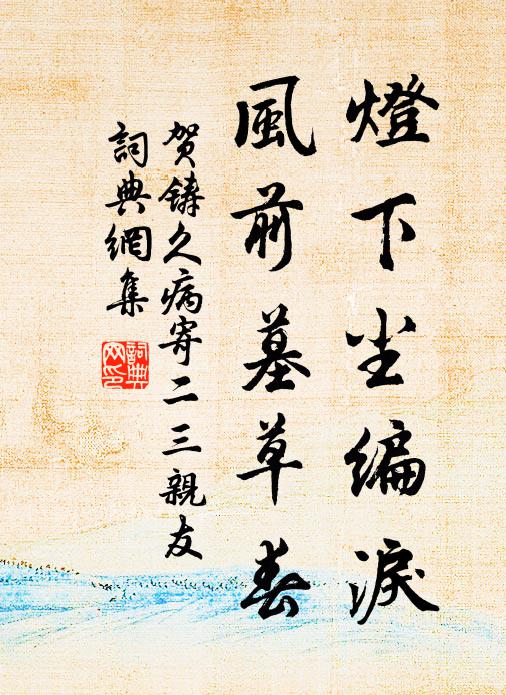 燈下尘编淚
風前墓草春
贺鑄久病寄二三親友
詞典網集
詞典網印